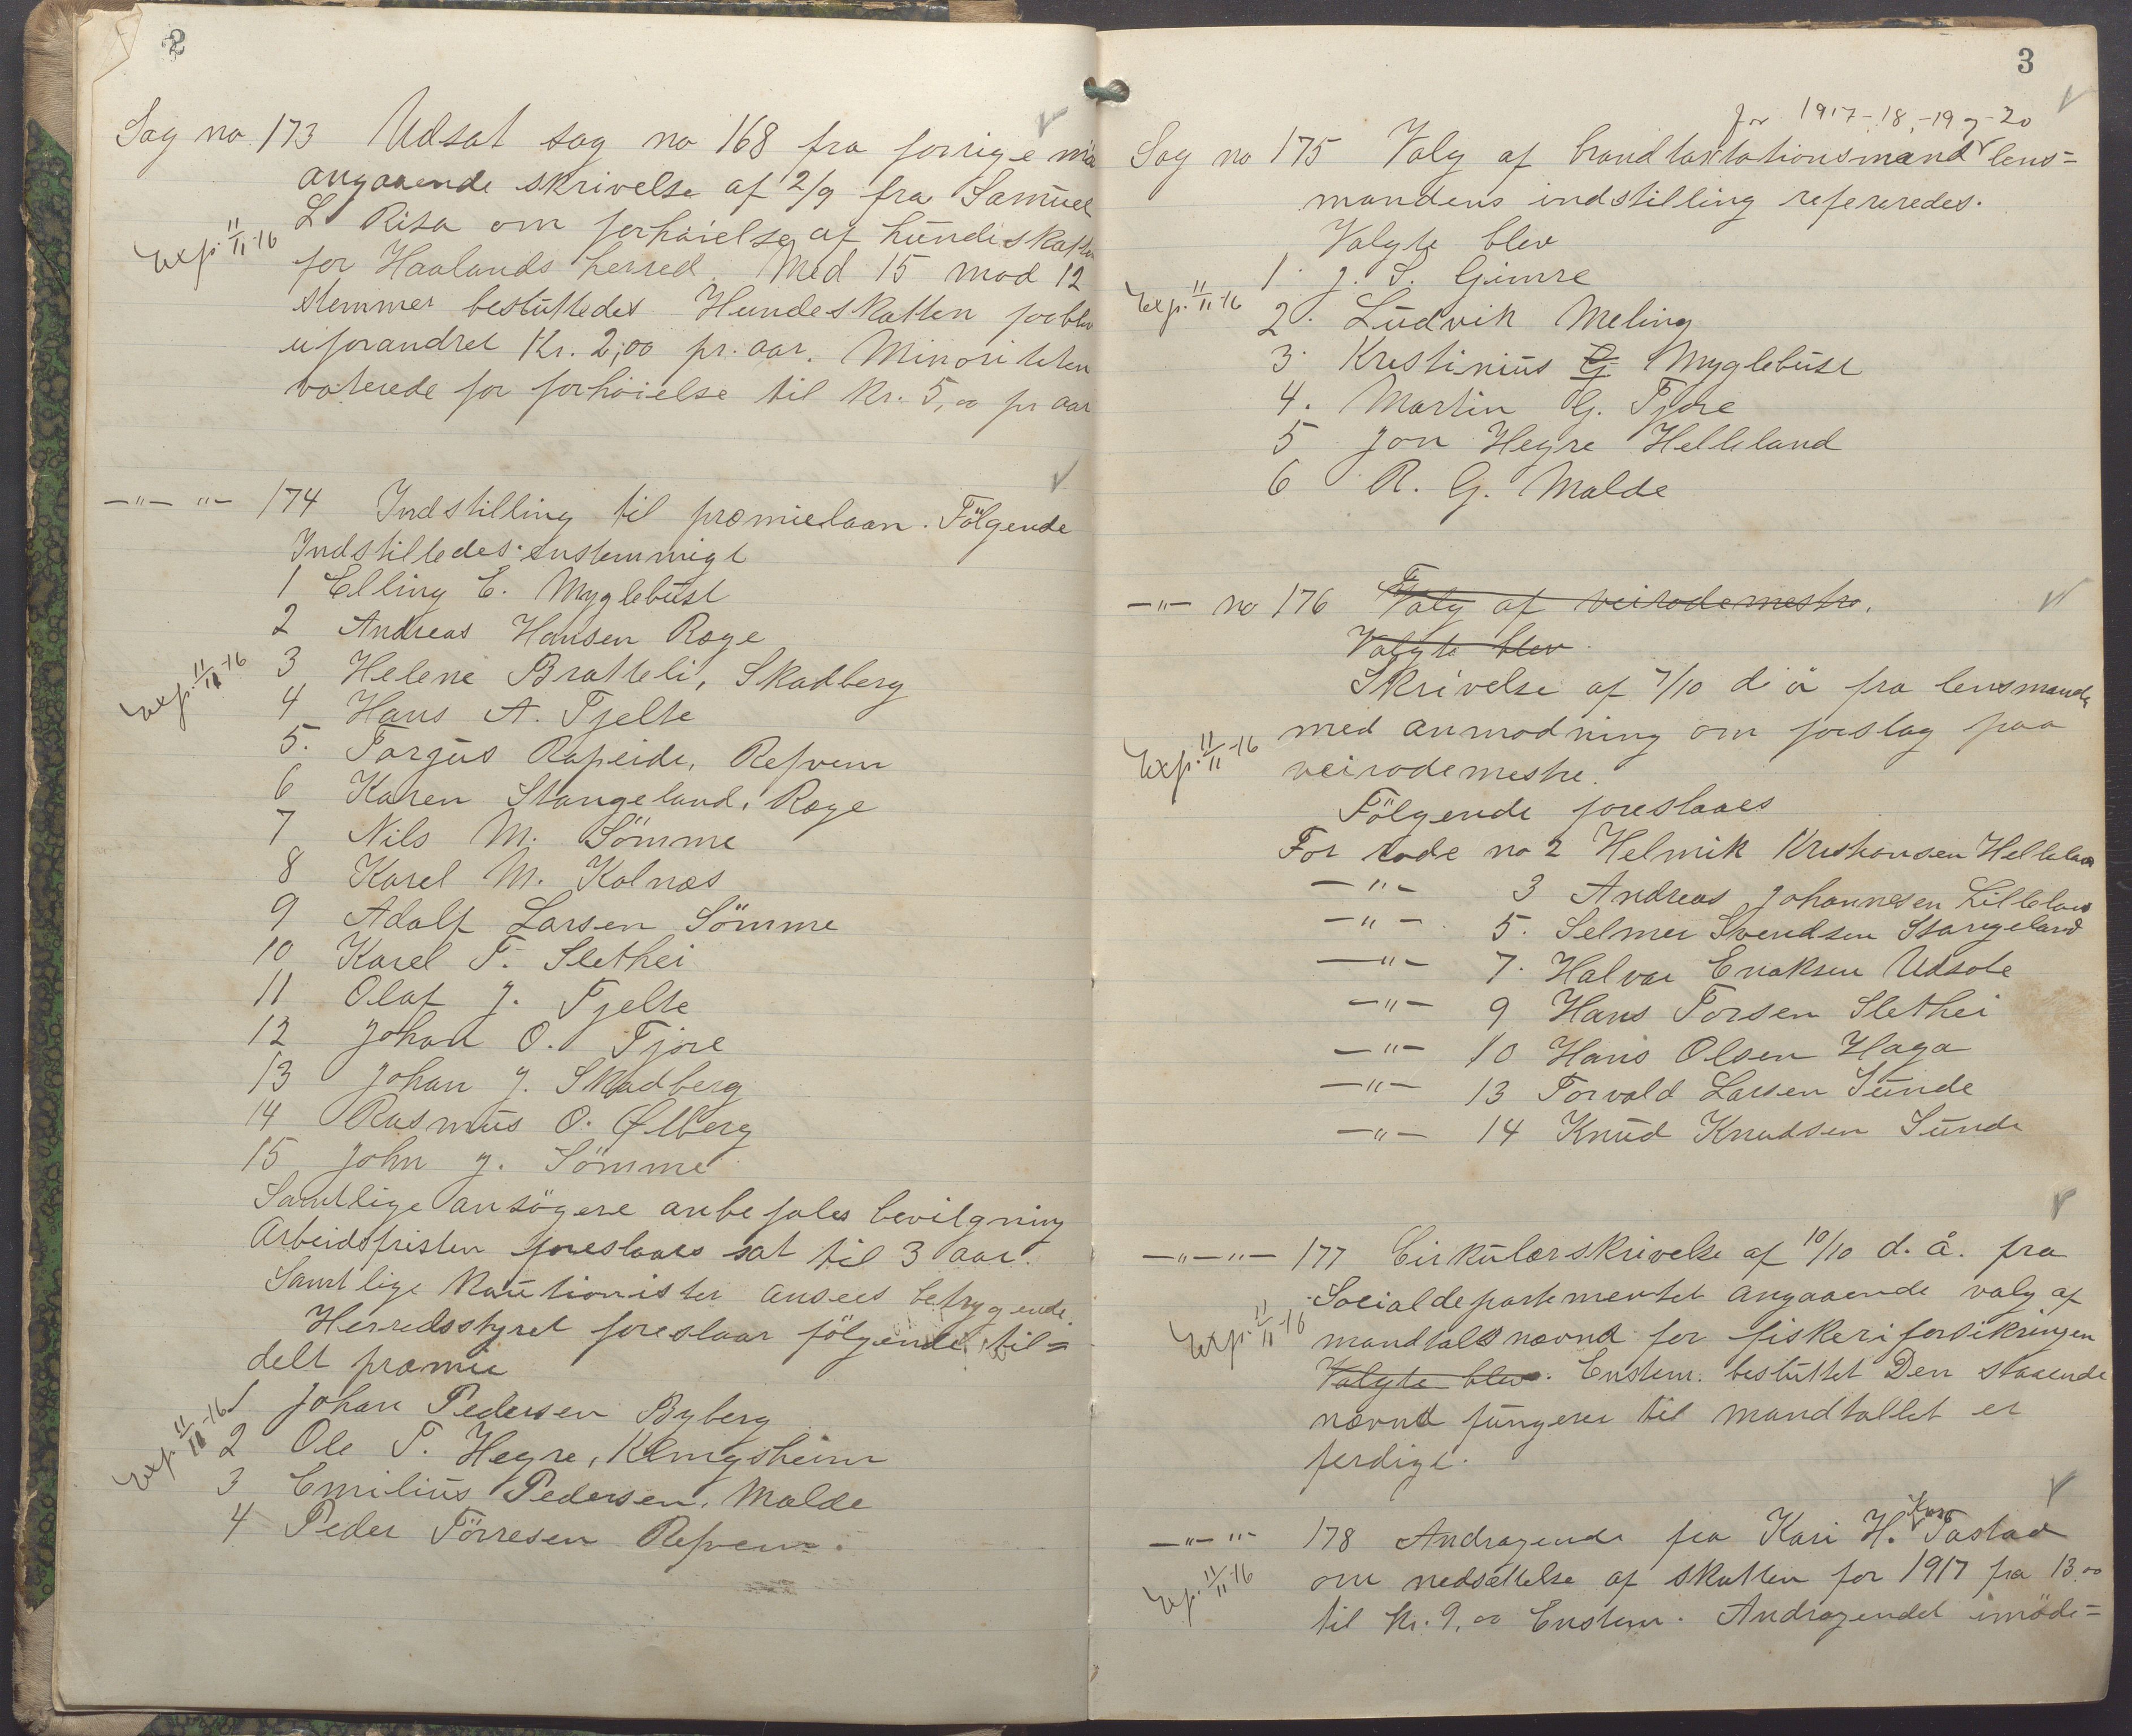 2
Sag no 173 Udsat sag no 168 fra forrige mø
angaaende skrivelse af 2/9 fra Samuel
L Risa om forhøielse af hundeskatten
Exp. 11/11-16
for Haalands herred. Med 15 mod 12
stemmer besluttedes Hundeskatten forblir
uforandret Kr. 2,00 pr. aar. Minoriteten
voterede for forhöielse til Kr. 5,00 pr aar
—"— "— 174 Indstilling til præmielaan. Fölgende
Indstilledes enstemmigt
1 Elling E. Myglebust
2 Andreas Hansen Ræge
Exp. 11/11-16
3 Helene Bratteli, Skadberg
4 Hans A. Tjelte
5. Torgus Rapeide, Refvem
6 Karen Stangeland, Ræge
7 Nils M. Sömme
8 Karel M. Kolnæs
9 Adolf Larsen Sömme
10 Karel T. Slethei
11 Olaf J. Tjelte
12 Johan O. Tjore
13 Johan J. Skadberg
14 Rasmus O. Ølberg
15 John J. Sömme
Samtlige ansögere anbefales bevilgning
Arbeidsfristen foreslaaes sat til 3 aar.
Samtlige Kautionister ansees betrygende.
Herredsstyret foreslaar fölgende til=
delt præmie
Exp. 11/11-16
1 Johan Pedersen Byberg
2 Ole T. Hegre, Klingsheim
3 Emilius Pedersen, Malde
4 Peder Törresen Refvem.
3
for 1917-18,-19 og-20
Sag no 175 Valg af brandtaxtationsmænd lens=
mandens indstilling refereredes.
Valgte blev
1. J. S. Gimre
Exp. 11/11-16
2. Ludvik Meling
3. Kristinius G Myglebust
4. Martin G. Tjore
5 Jon Hegre Helleland
6 R. G. Malde
—"— no 176 Valg af veirodemestre.
Valgte blev
Skrivelse af 7/10 d å fra lensmande
med anmodning om forslag paa
Exp. 11/11-16
veirodemestre.
Fölgende foreslaaes
For rode no 2 Helmik Kristiansen Hellelan
—"— 3 Andreas Johannesen Lillelan
—"— 5. Selmer Svendsen Stangeland
—"— 7. Halvar Enoksen Udsole
—"— 9 Hans Torsen Slethei
—"— 10 Hans Olsen Haga
—"— 13 Torvald Larsen Sunde
—"— 14 Knud Knudsen Sunde
—"—"— 177 Cirkulærskrivelse af 10/10 d. å. fra
Socialdepartementet angaaende valg af
Exp. 11/11-16
mandtalsnævnd for fiskeriforsikringen
Valgte blev. Enstem. besluttet Den staaende
nævnd fungerer til mandtallet er
ferdigt.
—"— "— 178 Andragende fra Kari H. Tastad
Exp. 11/11-16
om nedsættelse af skatten for 1917 fra 13.00
til Kr. 9,00 Enstem. Andragendet imöde=